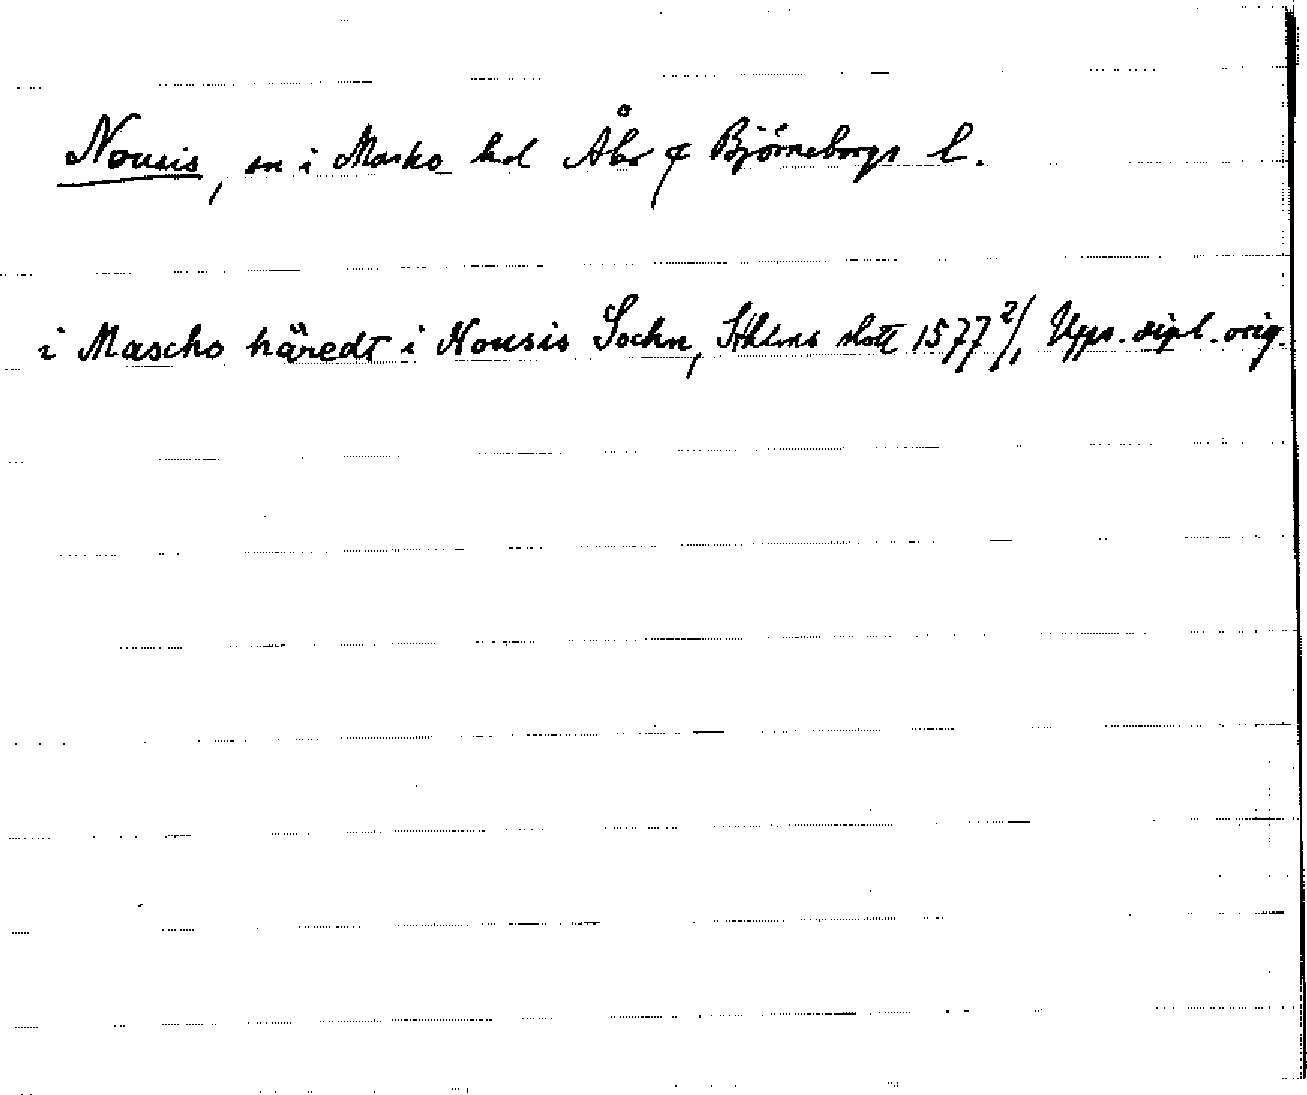 Nousis, sn i Masko hd Åbo & Björneborgs l.
i Mascho häredt i Nousis Sochn, Sthlms slott 1577 2/1 Upps. dipl. orig.